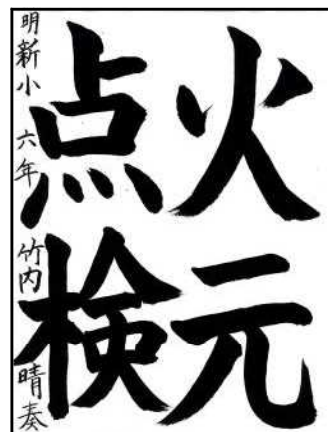 火元
点検
明新小 六年 竹内 晴奏